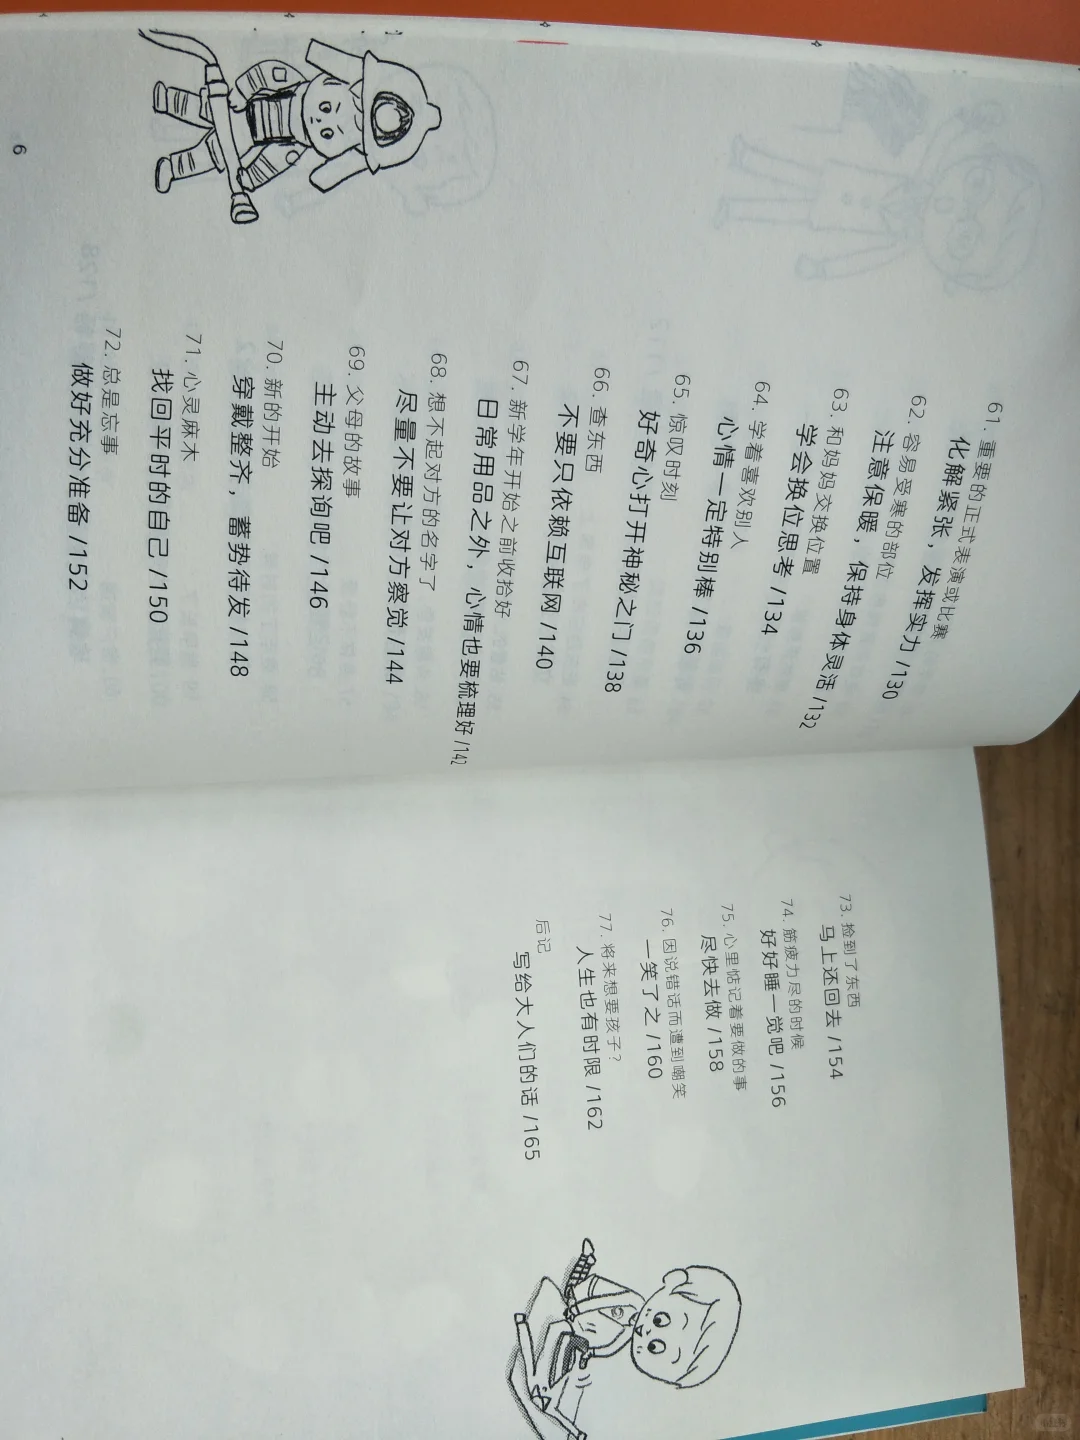 61. 重要的正式表演或比赛
化解紧张，发挥实力 /130
62. 容易受寒的部位
注意保暖，保持身体灵活 /132
63. 和妈妈交换位置
学会换位思考 /134
64. 学着喜欢别人
心情一定特别棒 /136
65. 惊叹时刻
好奇心打开神秘之门 /138
66. 查东西
不要只依赖互联网 /140
67. 新学年开始之前收拾好
日常用品之外，心情也要梳理好 /142
68. 想不起对方的名字了
尽量不要让对方察觉 /144
69. 父母的故事
主动去探询吧 /146
70. 新的开始
穿戴整齐，蓄势待发 /148
71. 心灵麻木
找回平时的自己 /150
72. 总是忘事
做好充分准备 /152
6
73. 捡到了东西
马上还回去 /154
74. 筋疲力尽的时候
好好睡一觉吧 /156
75. 心里惦记着要做的事
尽快去做 /158
76. 因说错话而遭到嘲笑
一笑了之 /160
77. 将来想要孩子？
人生也有时限 /162
后记
写给大人们的话 /165